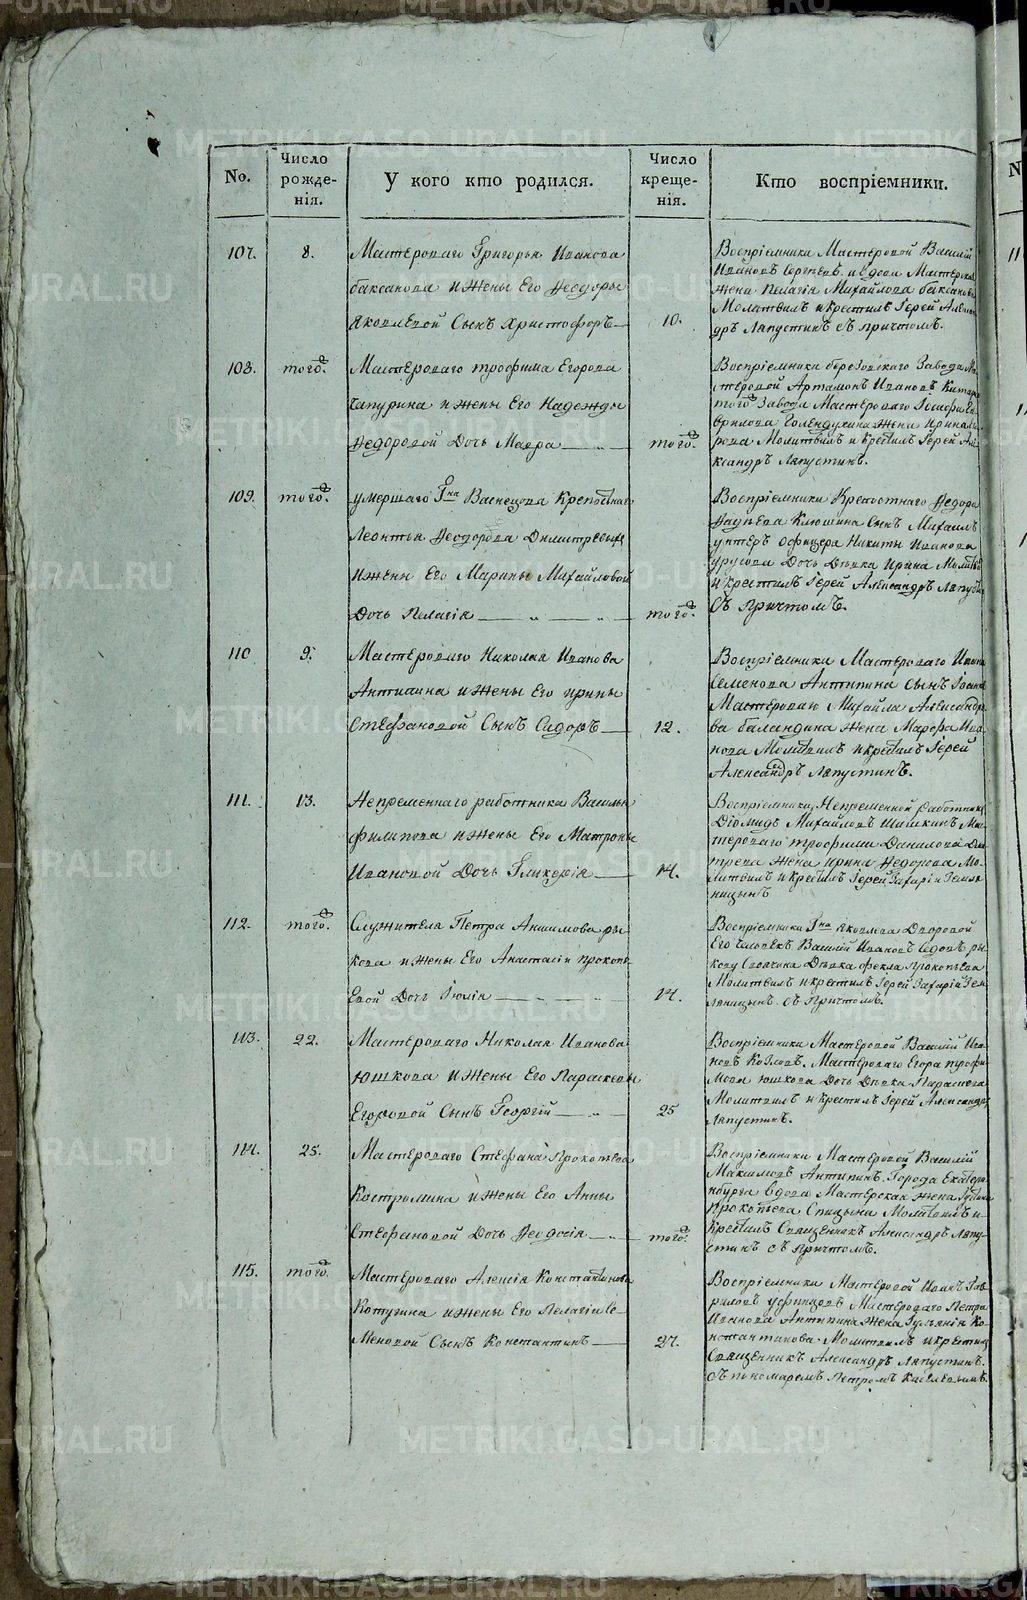 No.
Число рожде-нія.
У кого кто родился.
Число креще-нія.
Кто воспріемники.
107.
8.
Мастероваго Григорья Иванова
баксанова и жены Его Феодоры
Яковлевой Сынъ Христофоръ
10.
Воспріемники Мастеровой Василій
Ивановъ Сергеевъ и вдова Мастерская
жена Пелагія Михайлова баксанова
Молитвилъ и крестилъ Іерей Алексан-
дръ Ляпустинъ съ причтомъ.
108.
того.
Мастероваго трофима Егорова
Чапурина и жены Его Надежды
Федоровой Дочь Мавра
того.
Воспріемники березовскаго Завода Ма-
стеровой Артамонъ Ивановъ
того Завода Мастероваго Іосифа Га-
врилова Голендухина жена Ирина
рова Молитвилъ и крестилъ Іерей Але-
ксандръ Ляпустинъ.
109.
того.
умершаго Гна Васнецова Крепостнаго
Леонтья Феодорова Димитревыхъ
и жены Его Марины Михайловой
Дочь Пелагія
того.
Воспріемники Крепостнаго Федора
Фадѣева Клюшина Сынъ Михаилъ
унтеръ Офицера Никиты Иванова
Урусова Дочь Дѣвка Ирина Молитвилъ
и крестилъ Іерей Александръ Ляпустинъ
Съ Причтомъ.
110
9.
Мастероваго Николая Иванова
Антипина и жены Его Ирины
Стефановой Сынъ Сидоръ
12.
Воспріемники Мастероваго Ивана
Семенова Антипина сынъ Іоаннъ
Мастероваго Михайла Александро-
ва баландина жена Марфа Ива-
нова Молитвилъ и крестилъ Іерей
Александръ Ляпустинъ.
111.
13.
Непременнаго работника Василья
Филипова и жены Его Матроны
Ивановой Дочь Гликерія
14.
Воспріемники, Непременной работникъ
Діомидъ Михайловъ Шишкинъ Мас-
тероваго трофима Данилова Дми-
трева жена Ирина Федорова Мо-
литвилъ и крестилъ Іерей Захарій Земля-
ницынъ
112.
того.
Служителя Петра Анисимова ры-
кова и жены Его Анастасіи Прокопь-
евой Дочь Іюлія
14.
Воспріемники Гна Яковлева Дворовой
Его Человекъ Василій Ивановъ Седовъ ры-
кову Своячина Дѣвка Фекла Прокопьева
Молитвилъ и крестилъ Іерей Захарій Зем-
ляницынъ съ Причтомъ.
113.
22.
Мастероваго Николая Иванова
Юшкова и жены Его Параскевы
Егоровой Сынъ Георгій
25
Воспріемники Мастеровой Василій Ива-
новъ Козловъ. Мастероваго Егора трофи-
мова Юшкова Дочь Дѣвка Парасковья
Молитвилъ и крестилъ Іерей Александръ
Ляпустинъ.
114.
25.
Мастероваго Стефана Прокопьева
Костромина и жены Его Анны
Стефановой Дочь Феодосія
того.
Воспріемники Мастеровой Василій
Максимовъ Антипинъ. Города Екатери-
нбурга вдова Мастерская жена
Прокопьева Спицына Молитвилъ и
крестилъ Священникъ Александръ Ляпу-
стинъ съ Причтомъ.
115.
того.
Мастероваго Алексія Константинова
Котугина и жены Его Пелагіи Се-
меновой Сынъ Константинъ
27.
Воспріемники Мастеровой Иванъ Гав-
риловъ Уфинцовъ Мастероваго Петра
Иванова Антипина жена Гульянія Ко-
нстантинова. Молитвилъ и крестилъ
Священникъ Александръ Ляпустинъ.
Съ пономаремъ Петромъ Киселевымъ.
METRIKI.GASO-URAL.RU